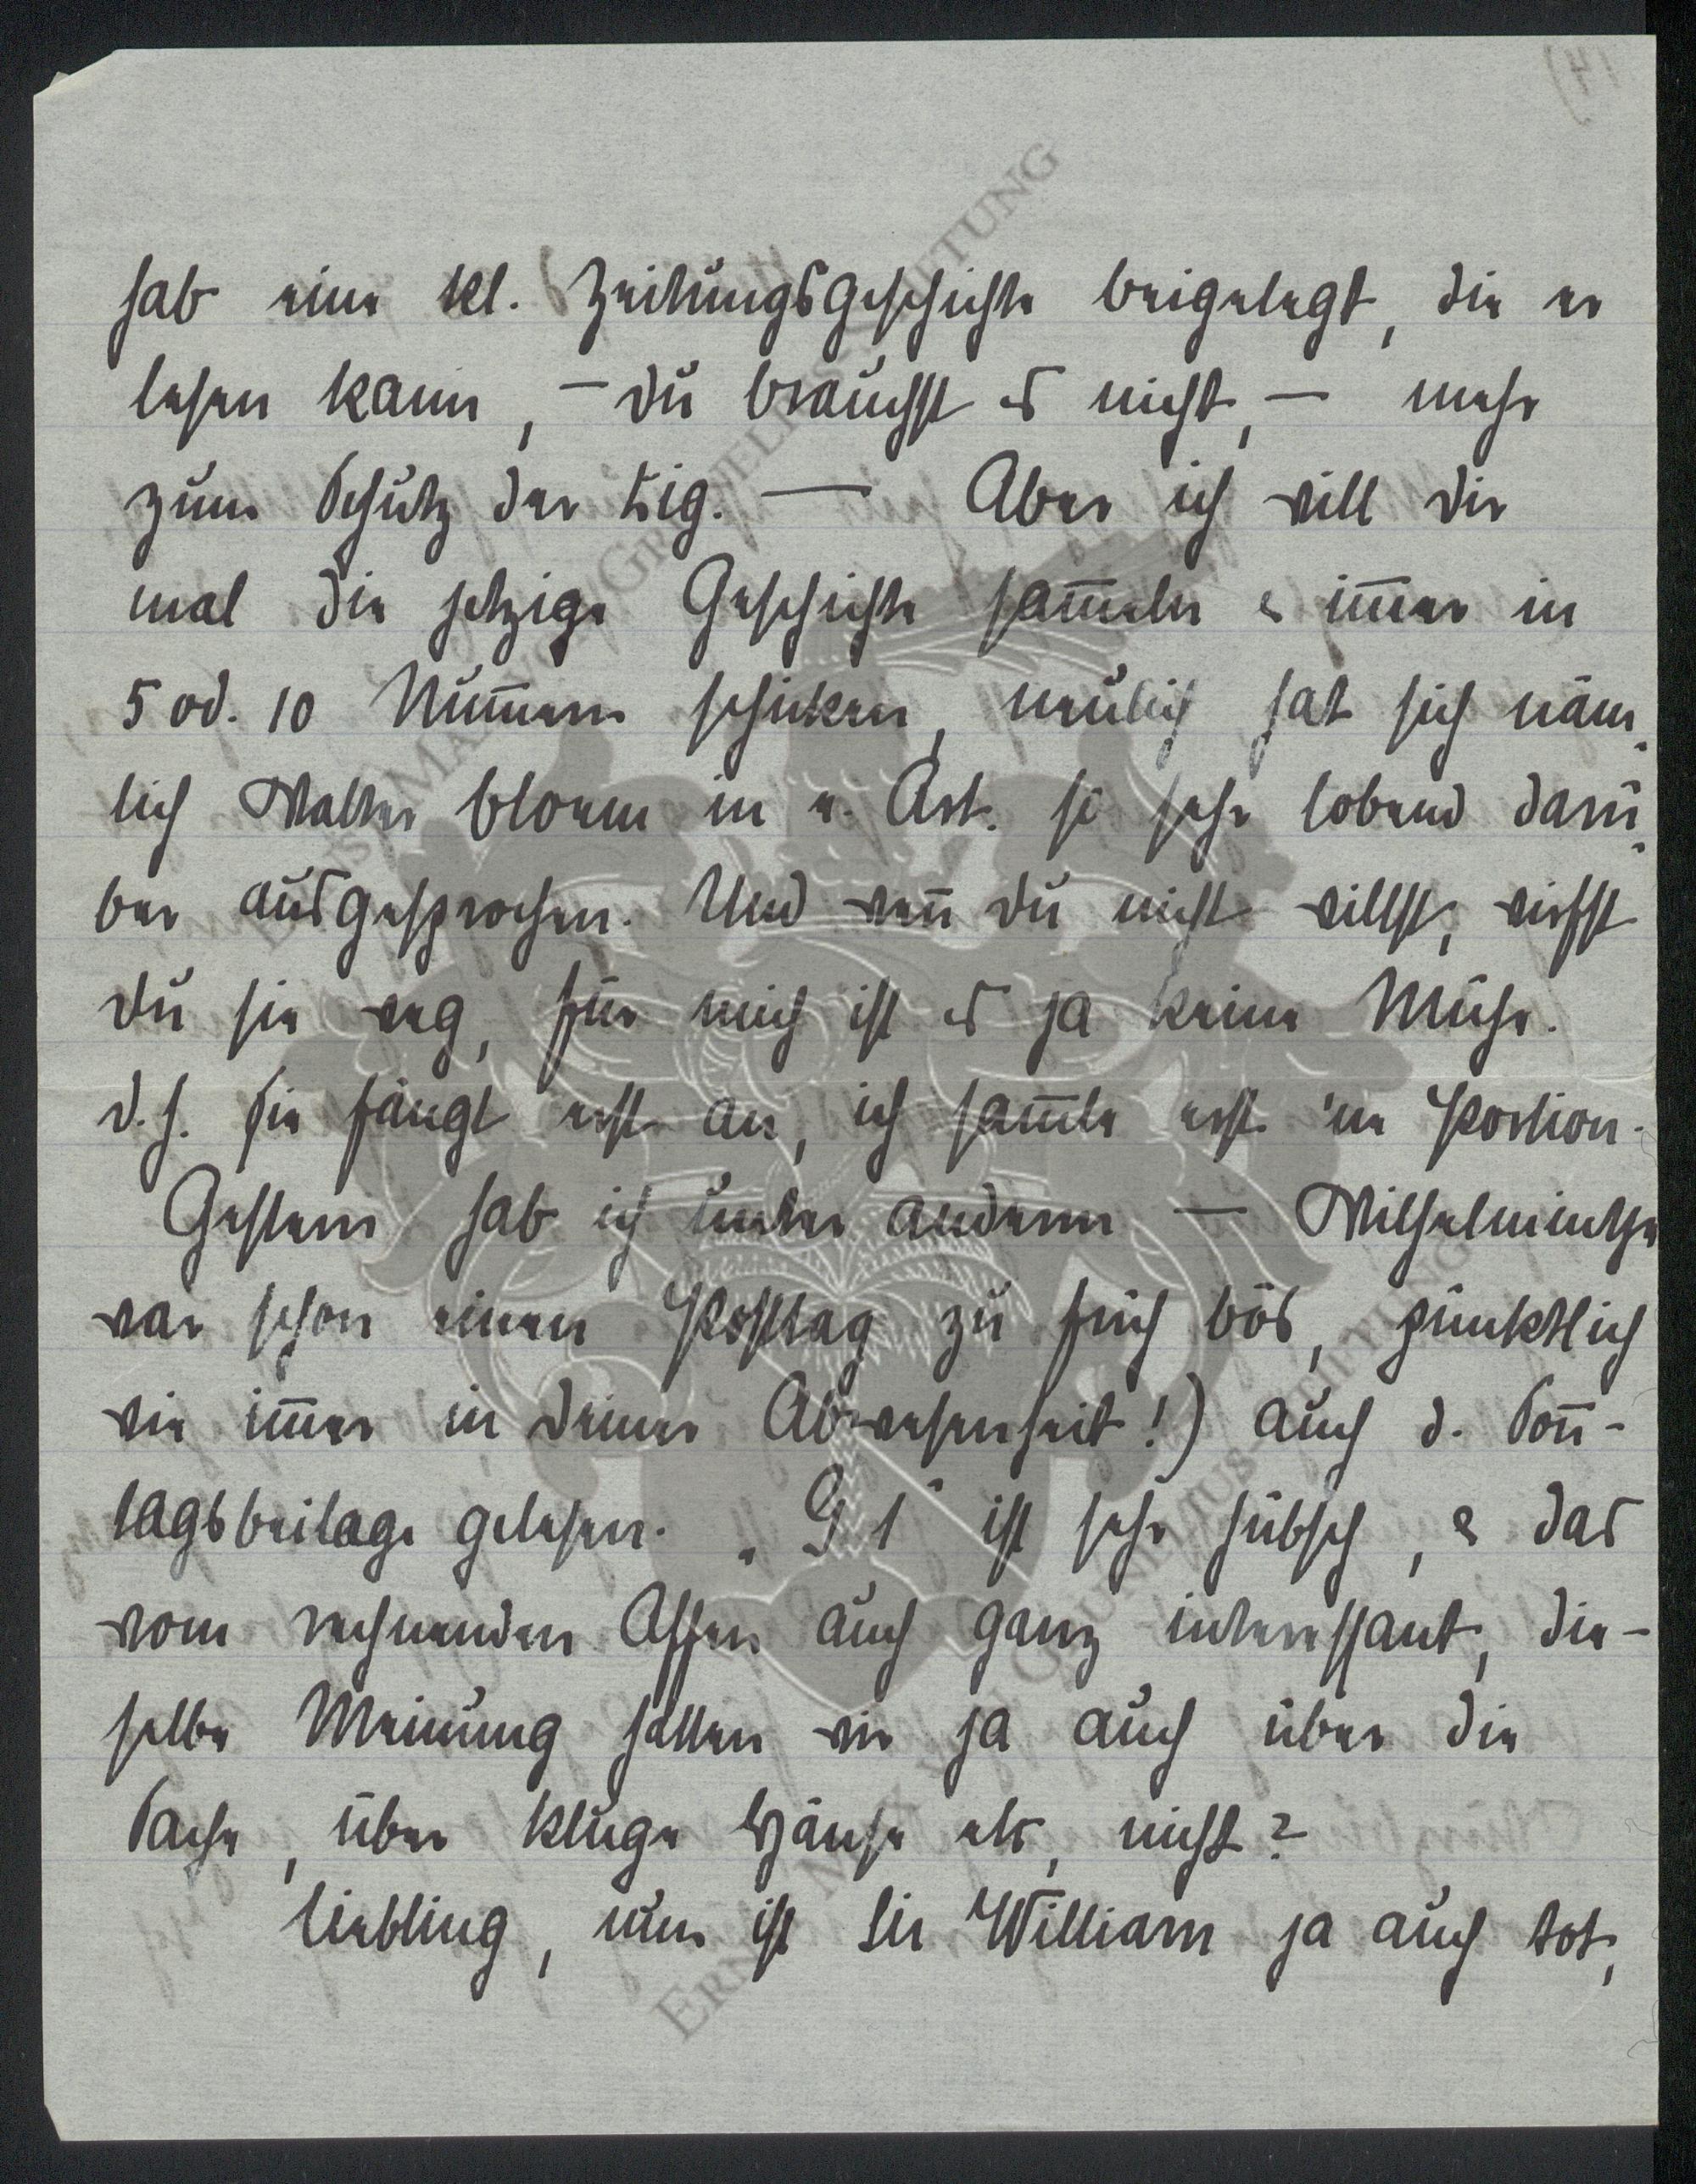 hab eine kl. Zeitungsgeschichte beigelegt, die er
lesen kann, – du brauchst es nicht, – mehr
zum Schutz der Zig. — Aber ich will dir
mal die jetzige Geschichte sam̅eln & im̅er in
5 od. 10 Num̅ern schicken, neulich hat sich näm-
lich Walter Bloem in e. Art. so sehr lobend darü-
ber ausgesprochen. Und wen̅ du nicht willst, wirfst
du sie weg, für mich ist es ja keine Mühe.
d.h. sie fängt erst an, ich sam̅le erst 'ne Portion.
Gestern hab ich unter anderm — Wilhelmintje
war schon einen Posttag zu früh bös, pünktlich
wie im̅er in deiner Abwesenheit!) auch d. Son̅-
tagsbeilage gelesen. „G 1" ist sehr hübsch, & das
vom rechnenden Affen auch ganz interessant, die-
selbe Meinung hatten wir ja auch über die
Sache, über kluge Hänse etc, nicht?
Liebling, nun ist Sir William ja auch tot,
ERNST MAX VON GRUNELIUS-STIFTUNG